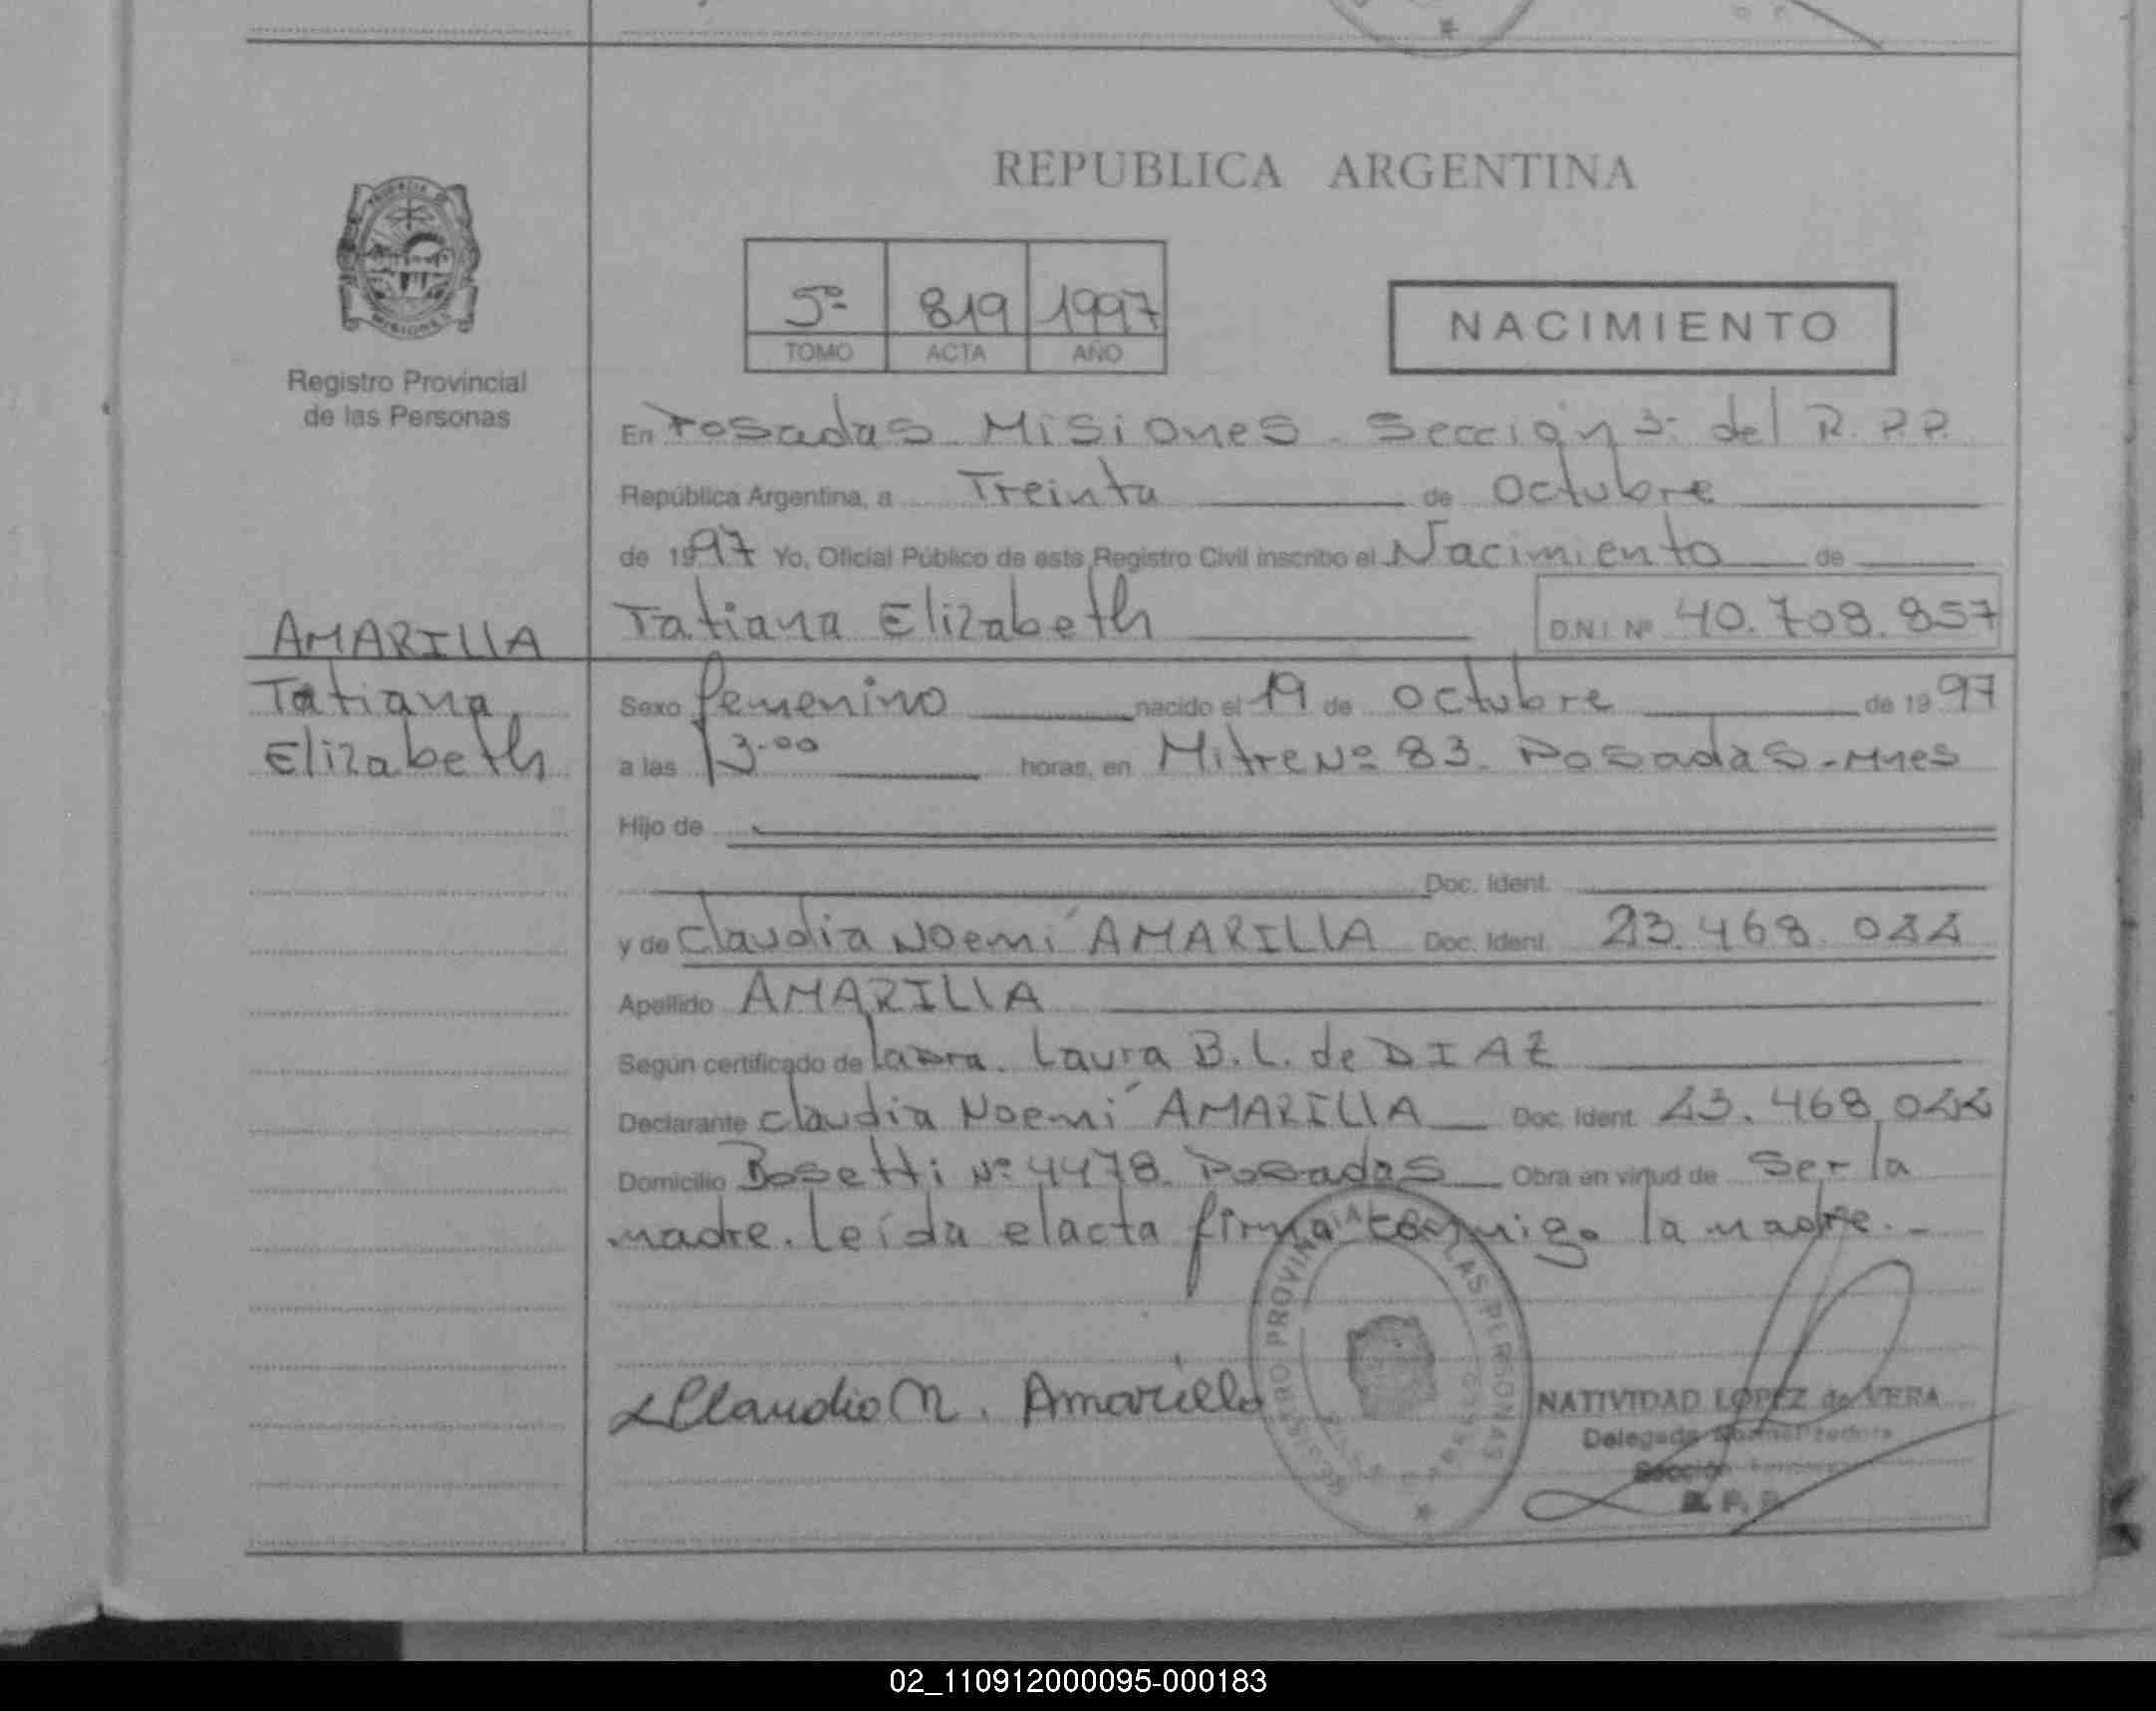 REPUBLICA ARGENTINA
MISIONES
Registro Provincial
de las Personas
5º 819 1997
TOMO ACTA AÑO
NACIMIENTO
En Posadas Misiones. Sección 3ª del R.P.P.
República Argentina, a Treinta de Octubre
de 1997 Yo, Oficial Público de este Registro Civil inscribo el Nacimiento de
Tatiana Elizabeth D.N.I. Nº 40.708.857
AMARILLA
Tatiana
Elizabeth
Sexo femenino nacido el 19 de Octubre de 1997
a las 13.00 horas, en Mitre Nº 83. Posadas-Mnes
Hijo de
Doc. Ident.
y de Claudia Noemí AMARILLA Doc. Ident. 23.468.022
Apellido AMARILLA
Según certificado de Laura B.L. de DIAZ
Declarante Claudia Noemí AMARILLA Doc. Ident. 23.468.022
Domicilio Bosetti Nº 4478. Posadas Obra en virtud de ser la
madre. leída el acta firma conmigo la madre.-
Claudia N. Amarilla
REGISTRO PROVINCIAL LAS PERSONAS
NATIVIDAD LOPEZ de VERA
Delegada
Sección
R.P.P.
02_110912000095-000183